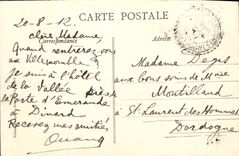 20-8-12
CARTE POSTALE
Correspondance
Adresse
Chère Madame,
Quand rentrerez vous
au
je suis à l'hôtel
de la Vallée près de
la Porte d'Emeraude
à Dinard
Recevez mes amitiés
Madame Degas
aux bons soins de Mme
Montillaud
à St Laurent des Hommes
Dordogne